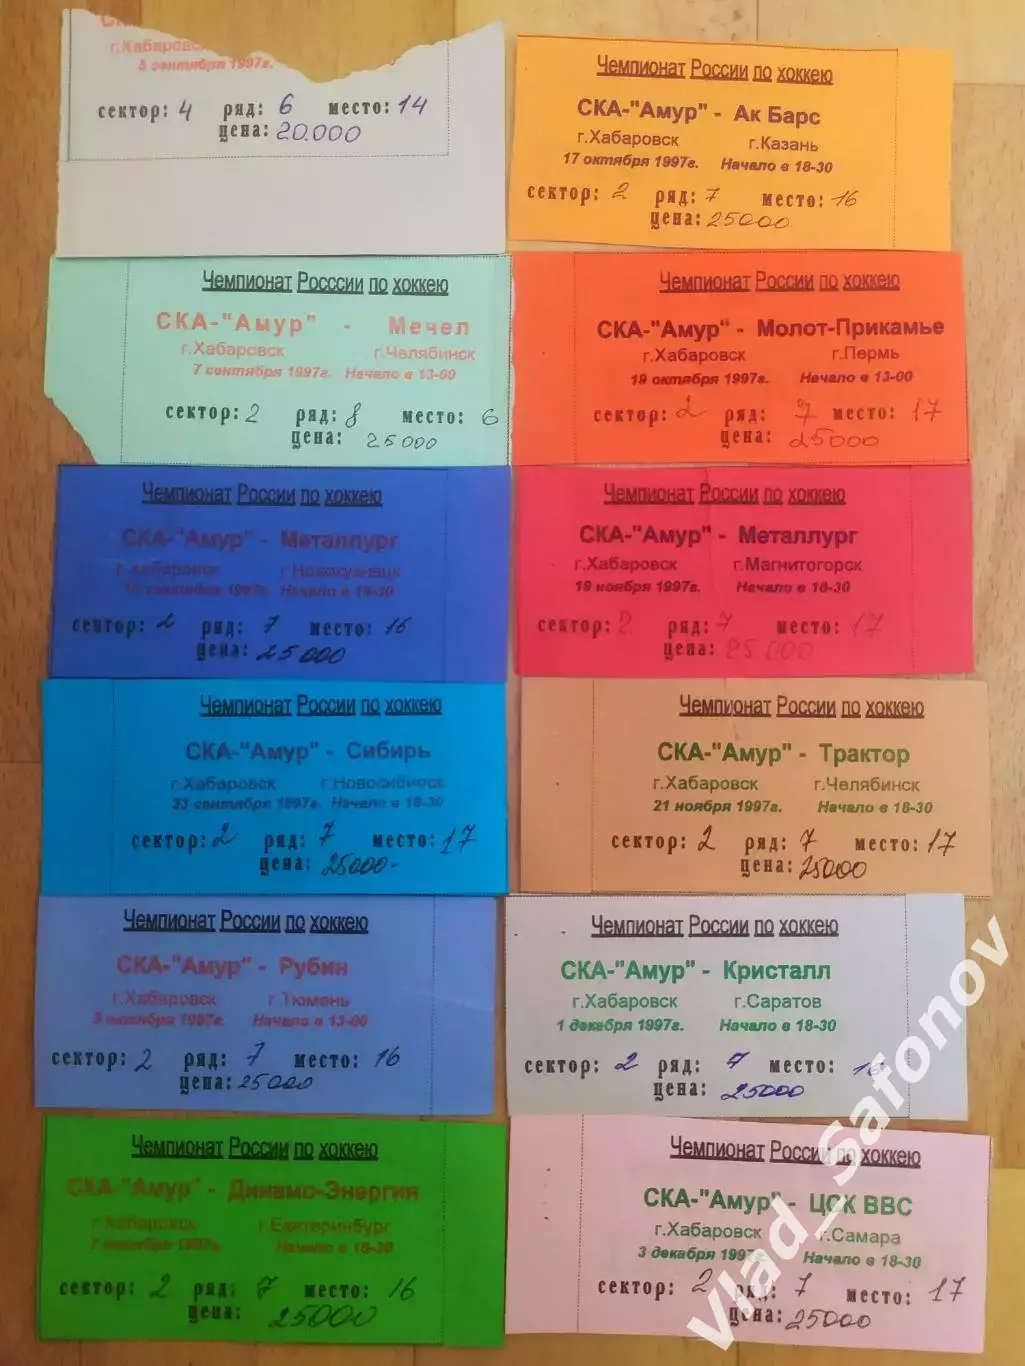 г.Хабаровск
5 сентября 1997г.
сектор: 4 ряд: 6 место: 14
цена: 20.000
Чемпионат Росссии по хоккею
СКА-"Амур" - Мечел
г.Хабаровск г.Челябинск
7 сентября 1997г. Начало в 13-00
сектор: 2 ряд: 8 место: 6
цена: 25000
Чемпионат России по хоккею
СКА-"Амур" - Металлург
г.Хабаровск г.Новокузнецк
сентября 1997г. Начало в 18-30
сектор: 2 ряд: 7 место: 16
цена: 25000
Чемпионат России по хоккею
СКА-"Амур" - Сибирь
г.Хабаровск г.Новосибирск
23 сентября 1997г. Начало в 18-30
сектор: 2 ряд: 7 место: 17
цена: 25000-
Чемпионат России по хоккею
СКА-"Амур" - Рубин
г.Хабаровск г.Тюмень
октября 1997г. Начало в 13-00
сектор: 2 ряд: 7 место: 16
цена: 25000
Чемпионат России по хоккею
СКА-"Амур" - Динамо-Энергия
г.Хабаровск г.Екатеринбург
7 октября 1997г. Начало в 18-30
сектор: 2 ряд: 7 место: 16
цена: 25000
Чемпионат России по хоккею
СКА-"Амур" - Ак Барс
г.Хабаровск г.Казань
17 октября 1997г. Начало в 18-30
сектор: 2 ряд: 7 место: 16
цена: 25000
Чемпионат России по хоккею
СКА-"Амур" - Молот-Прикамье
г.Хабаровск г.Пермь
19 октября 1997г. Начало в 13-00
сектор: 2 ряд: 7 место: 17
цена: 25000
Чемпионат России по хоккею
СКА-"Амур" - Металлург
г.Хабаровск г.Магнитогорск
19 ноября 1997г. Начало в 18-30
сектор: 2 ряд: 7 место: 17
цена: 25000
Чемпионат России по хоккею
СКА-"Амур" - Трактор
г.Хабаровск г.Челябинск
21 ноября 1997г. Начало в 18-30
сектор: 2 ряд: 7 место: 17
цена: 25000
Чемпионат России по хоккею
СКА-"Амур" - Кристалл
г.Хабаровск г.Саратов
1 декабря 1997г. Начало в 18-30
сектор: 2 ряд: 7 место: 16
цена: 25000
Чемпионат России по хоккею
СКА-"Амур" - ЦСК ВВС
г.Хабаровск г.Самара
3 декабря 1997г. Начало в 18-30
сектор: 2 ряд: 7 место: 17
цена: 25000
Vlad_Safonov